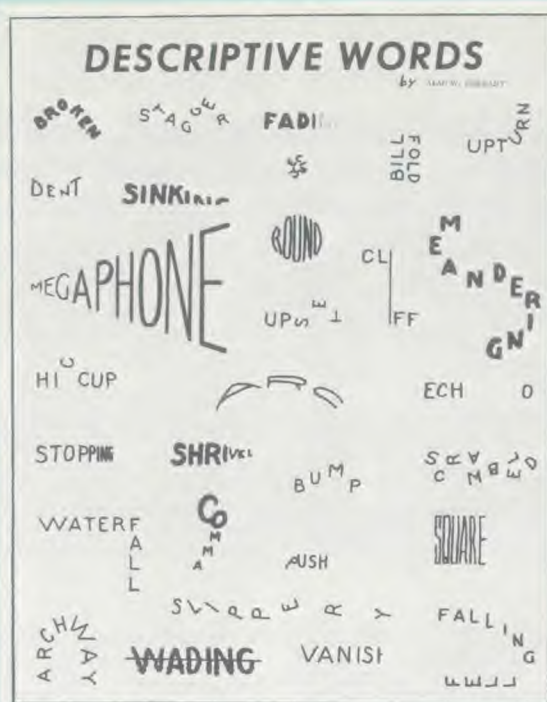 DESCRIPTIVE WORDS
by
BROKEN STAGGER FADI BILL FOLD UPTURN
DENT SINKING
ROUND
MEGAPHONE CLIFF MEANDERING
UPSET
HICCUP ECH O
STOPPING SHRIVEL BUMP SCRAMBLED
WATERFALL COMMA PUSH SQUARE
SLIPPERY
ARCHWAY WADING VANISH FALLING
FELL